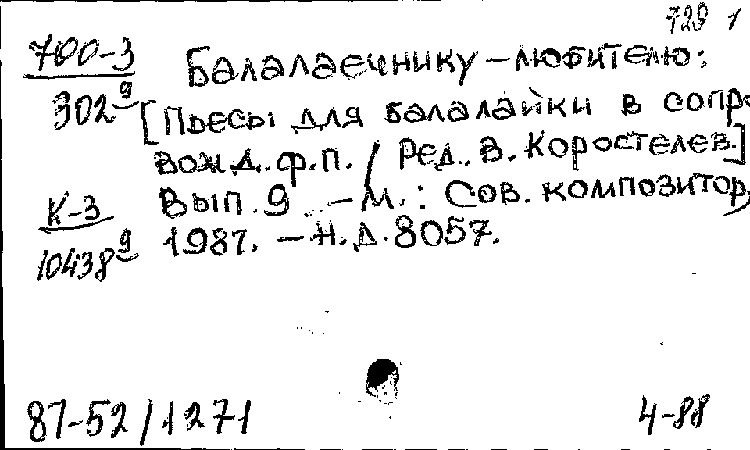 729 1
700-3 Балалаечнику-любителю:
302⁹ [Пьесы для балалайки в сопро
вожд. ф.п. / Ред. В. Коростелев.]
К-3 Вып. 9 - М.: Сов. композитор,
10438⁹ 1987. - Н.Д. 8057.
87-52/1271 4-88